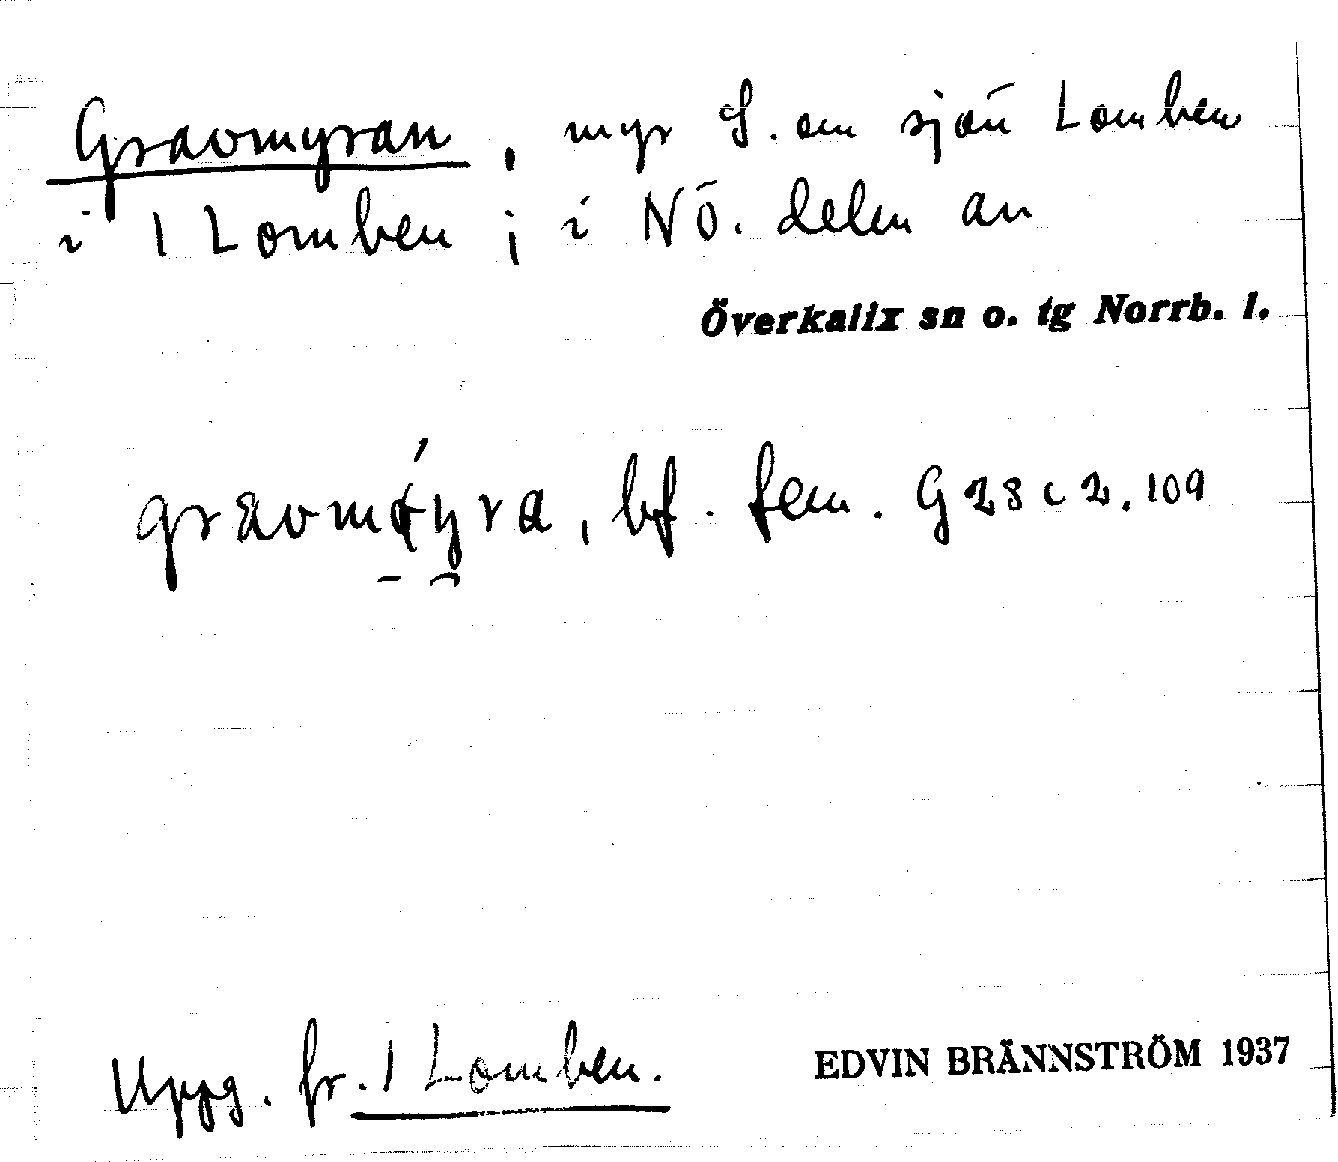 Graomyran, myr S. om sjön Lomben
i 1 Lomben; i NÖ. delen av
Överkalix sn o. tg Norrb. l.
bf. fem. G 28 c 2, 109
Uppg. fr. 1 Lomben.
EDVIN BRÄNNSTRÖM 1937